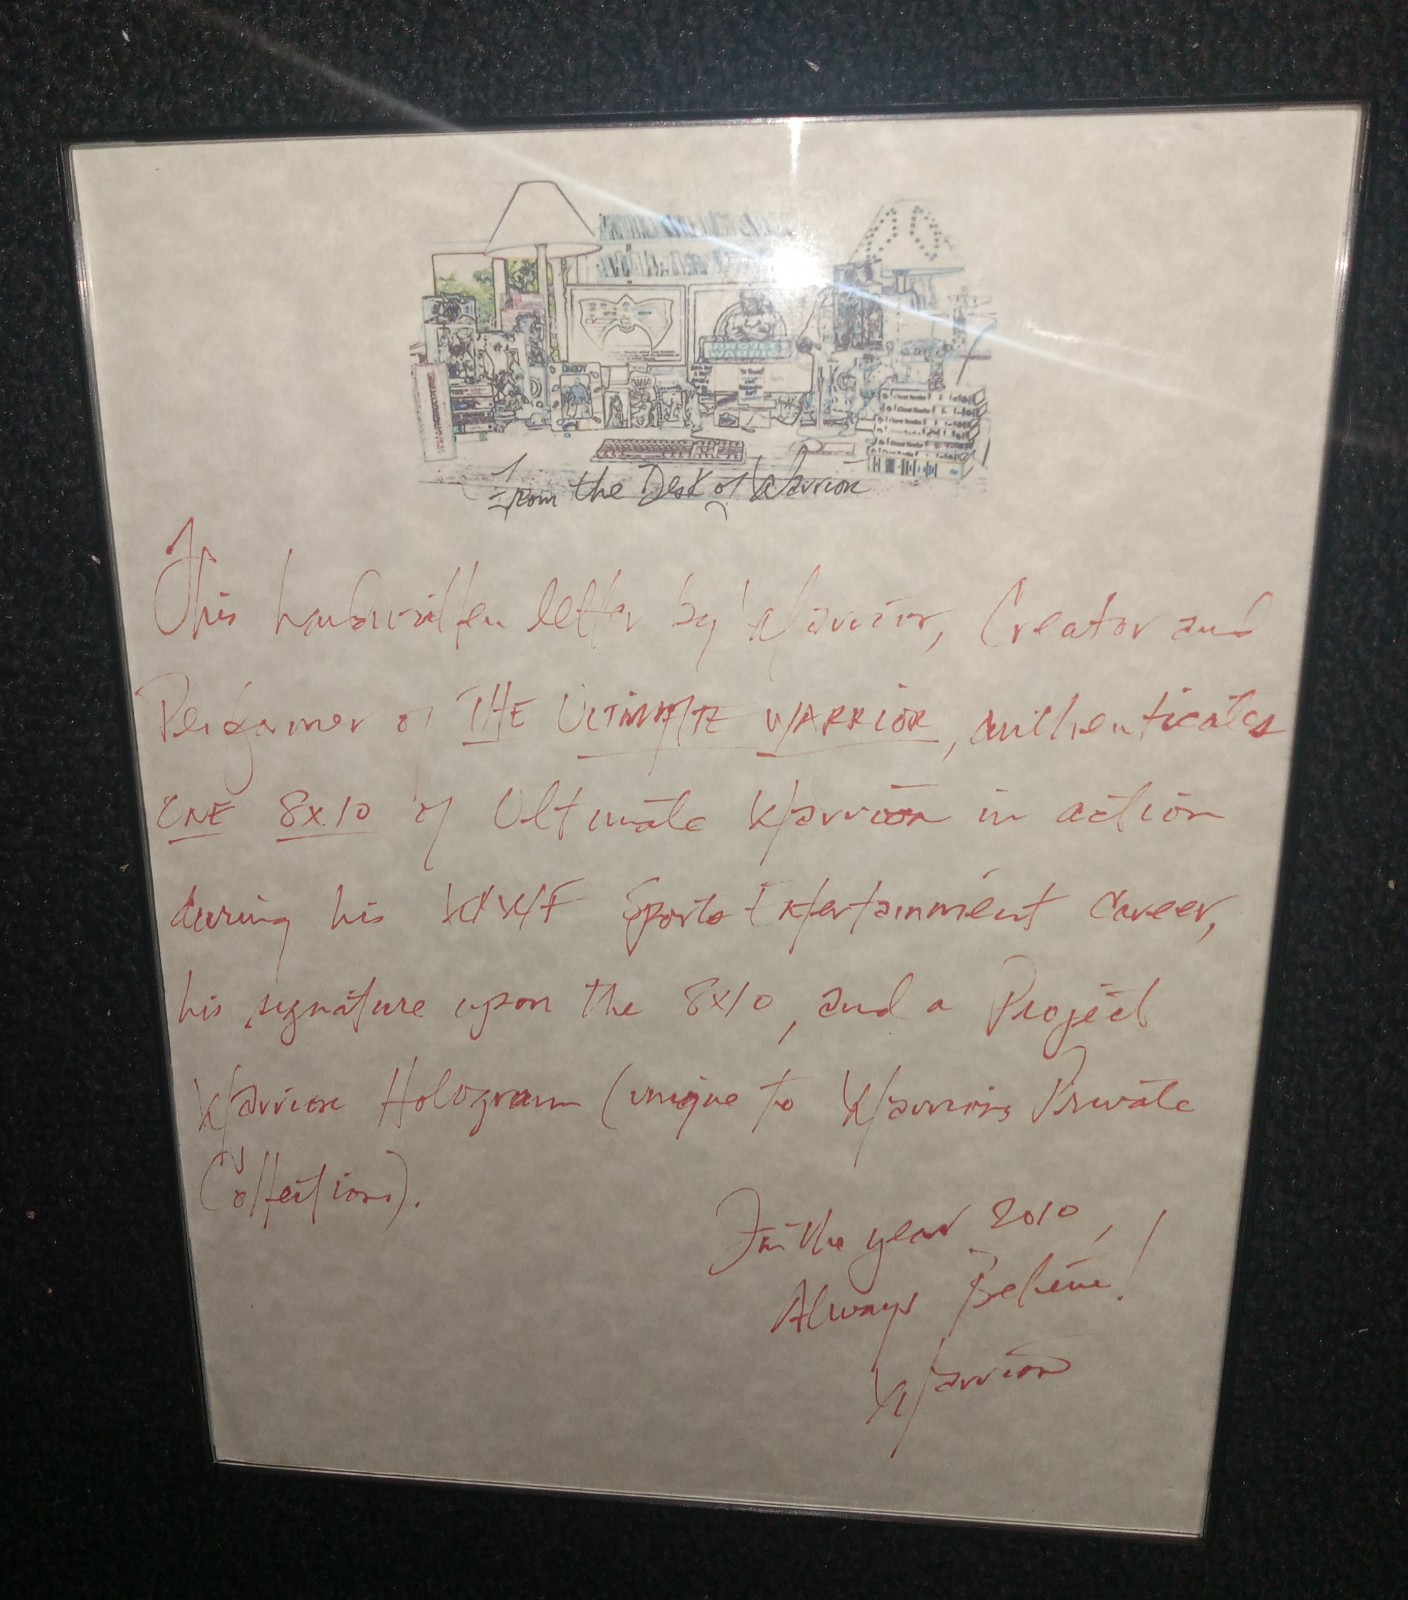 DADDY
From the Desk of Warrior
This handwritten letter by Warrior, Creator and
Performer of THE ULTIMATE WARRIOR, authenticates
ONE 8x10 of Ultimate Warrior in action
during his WWF Sports Entertainment career,
his signature upon the 8x10, and a Project
Warrior Hologram (unique to Warriors Private
Collection).
In the year 2010,
Always Believe!
Warrior